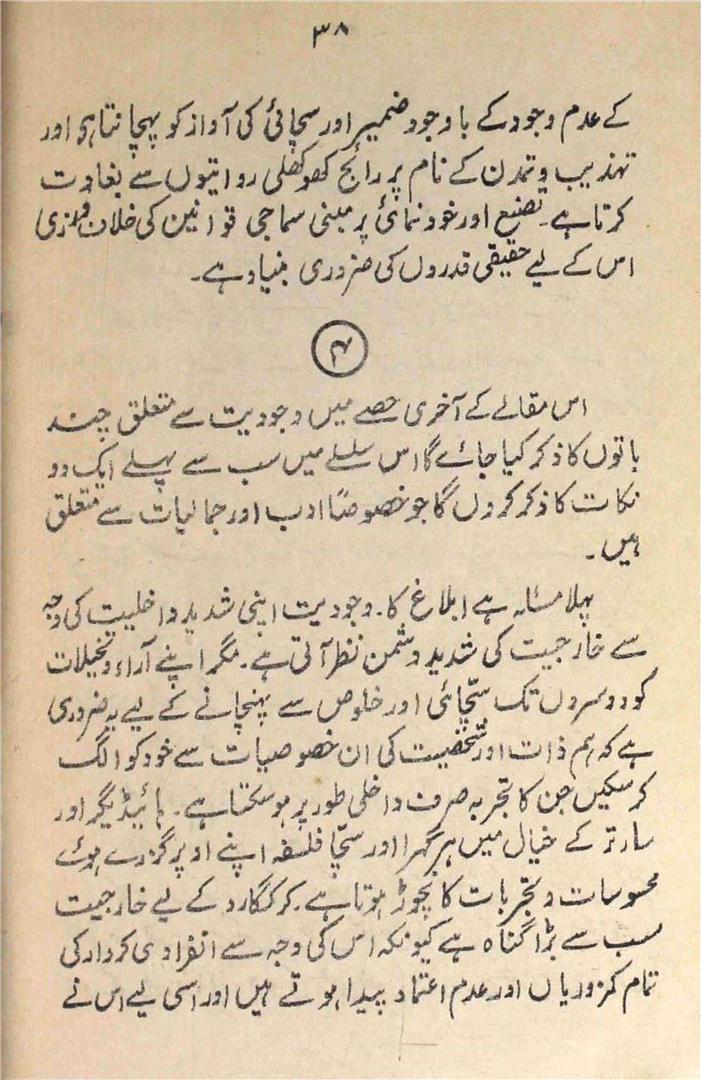 ۳۸
کے عدم وجود کے باوجود ضمیر اور سچائی کی آواز کو پہچانتا ہی اور
تہذیب و تمدن کے نام پر رائج کھوکھلی روایتوں سے بغاوت
کرتا ہے۔ تصنیع اور خود نمائی پر مبنی سماجی قوانین کی خلاف ورزی
اس کے لیے حقیقی قدروں کی ضروری بنیاد ہے۔
۴
اس مقالے کے آخری حصے میں وجودیت سے متعلق چند
باتوں کا ذکر کیا جائے گا اس سلسلے میں سب سے پہلے ایک دو
نکات کا ذکر کروں گا جو خصوصاً ادب اور جمالیات سے متعلق
ہیں۔
پہلا مسئلہ ہے ابلاغ کا۔ وجودیت اپنی شدید داخلیت کی وجہ
سے خارجیت کی شدید دشمن نظر آتی ہے۔ مگر اپنے آراء و تخیلات
کو دوسروں تک سچّائی اور خلوص سے پہنچانے کے لیے یہ ضروری
ہے کہ ہم ذات اور شخصیت کی ان خصوصیات سے خود کو الگ
کر سکیں جن کا تجربہ صرف داخلی طور پر ہو سکتا ہے۔ ہائیڈیگر اور
سارتر کے خیال میں ہر گہرا اور سچّا فلسفہ اپنے اوپر گزرے ہوئے
محسوسات و تجربات کا نچوڑ ہوتا ہے۔ کرکگارد کے لیے خارجیت
سب سے بڑا گناہ ہے کیونکہ اس کی وجہ سے انفرادی کردار کی
تمام کمزوریاں اور عدم اعتماد پیدا ہوتے ہیں اور اسی لیے اس نے